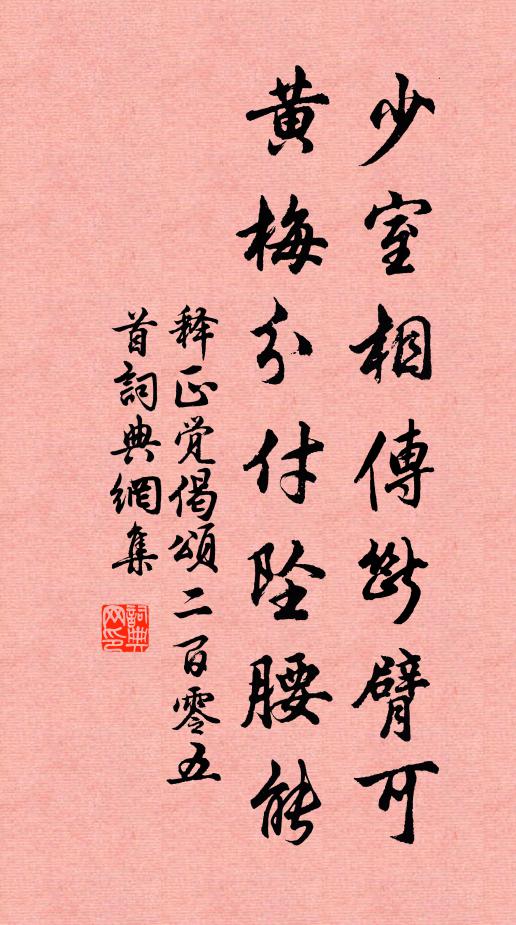 少室相傳斷臂可
黄梅分付坠腰能
释正觉偈頌二百零五
首詞典網集
詞典网印